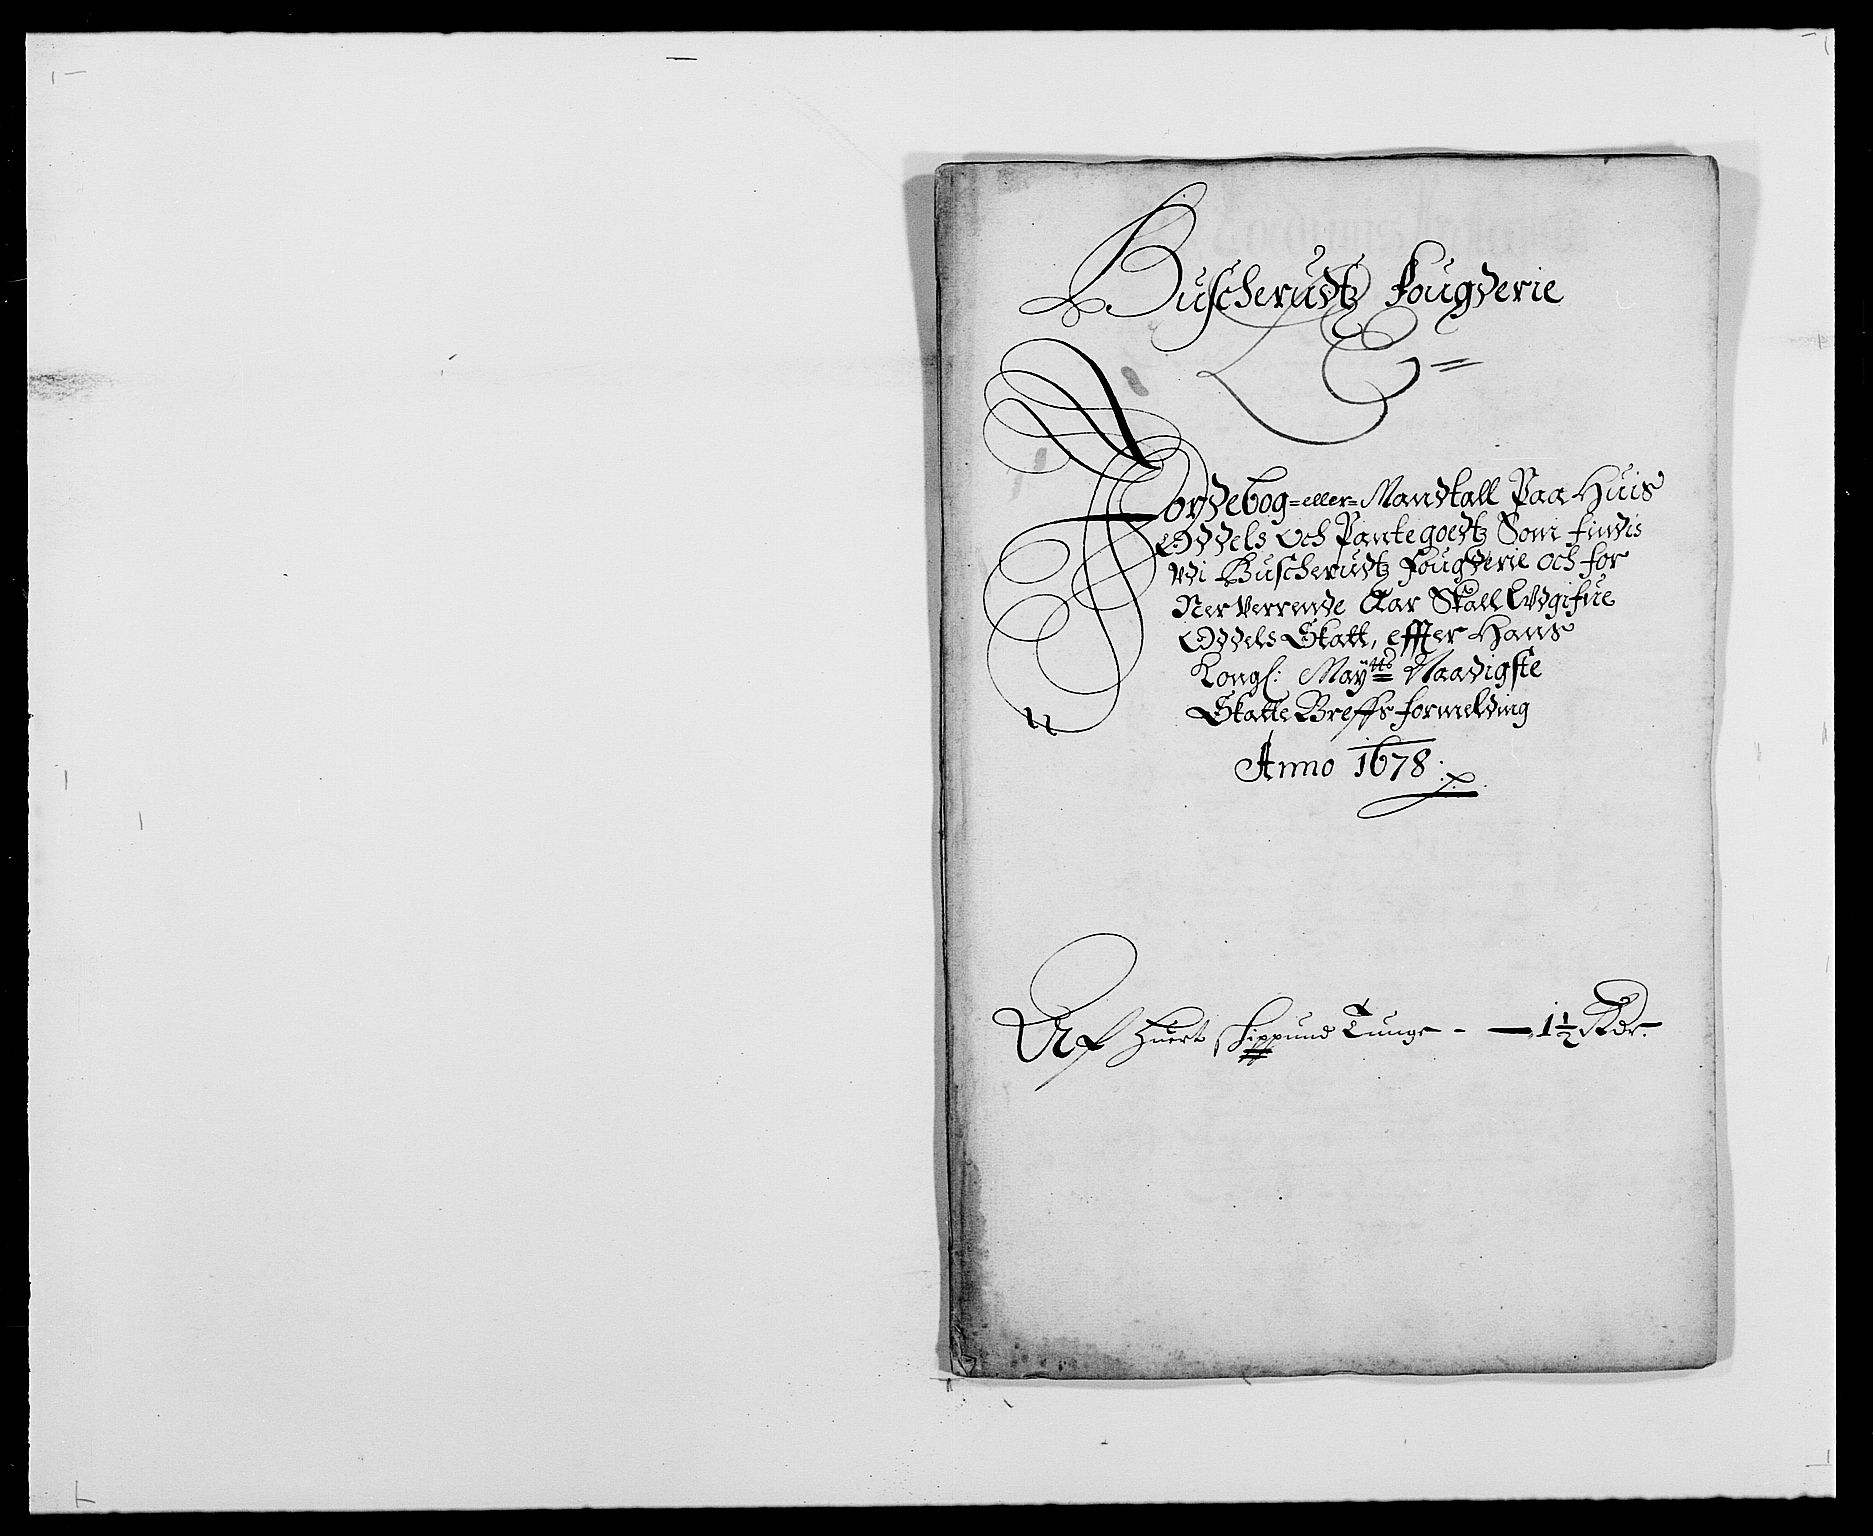 Buscherudtz Fougderie
Jordebog =eller= Mandtall Paa Huis
Oddels och Pantegoedtz Som findis
Vdi Buscherudtz Fougderie och for
Nerverrende Aar Skall Vdgifue
Oddels Skatt, effter Hans
Kongl: Maytts Naadigste
Skatte Breffs formelding
Anno 1678
Af huert skippund Tunge - — 1½ Rdr.